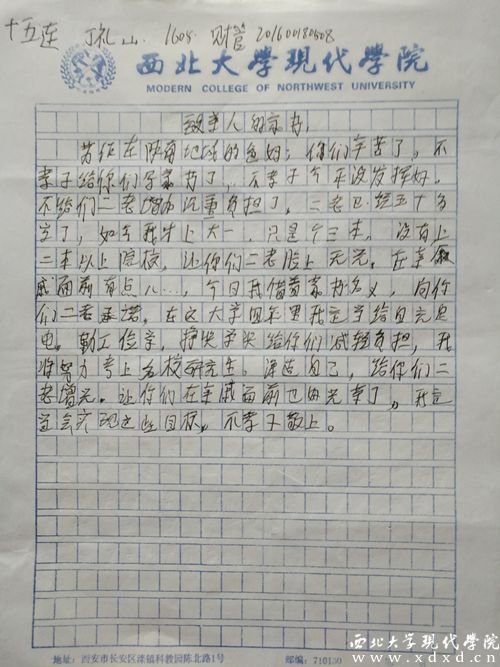 十五连 丁礼山. 1605. 财管 20160180508
西北大学现代学院
MODERN COLLEGE OF NORTHWEST UNIVERSITY
致亲人的家书,
劳作在陕南地域的爸妈: 你们辛苦了, 不
孝子给你们写家书了, 不孝子今年没发挥好.
不给们二老增加沉重负担了, 二老已经五十多
岁了, 如今我才上大一, 只是个三本, 没有上
二本以上院校, 让你们二老脸上无光. 在亲
戚面前有点儿…, 今日我借着家书名义, 向你
们二老承诺. 在这大学四年里我定学给自己充
电. 勤工俭学, 给你们减轻负担, 我
将努力考上名校研究生. 深造自己, 给你们二
老增光. 让你们在亲戚面前也由光幸了, 我一
定会实现这些目标, 不孝子敬上.
地址: 西安市长安区滦镇科教园陈北路1号 邮编: 710130
西北大学现代学院
www.xdxd.cn